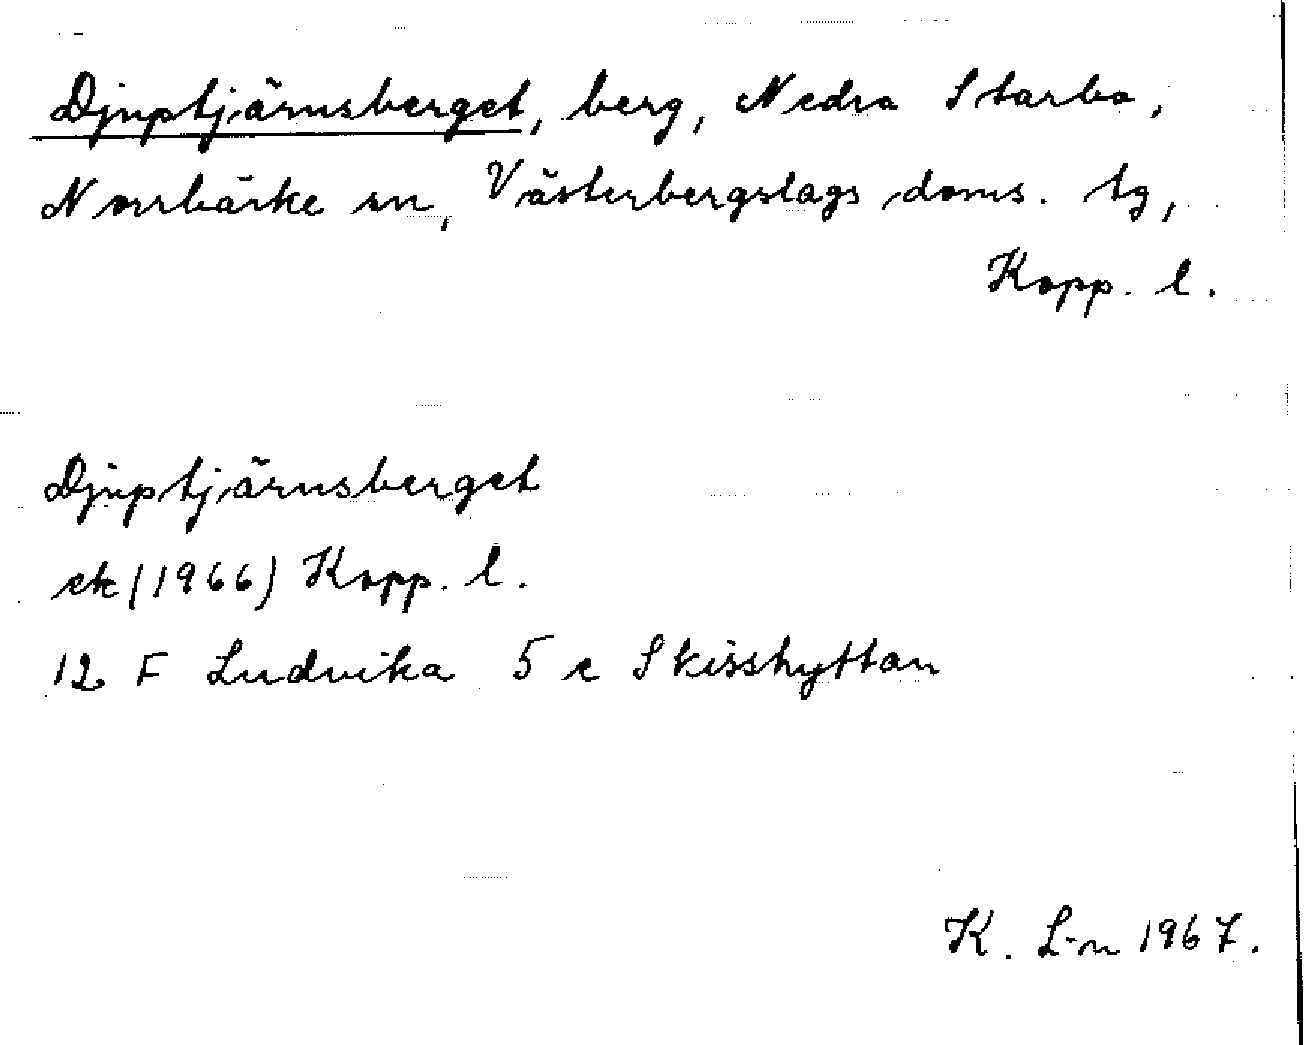 Djuptjärnsberget, berg, Nedra Starbo,
Norrbärke sn, Västerbergslags doms. tg,
Kopp. l.
Djuptjärnsberget
ek (1966) Kopp. l.
12 F Ludvika 5 c Skisshyttan
K. L-n 1967.